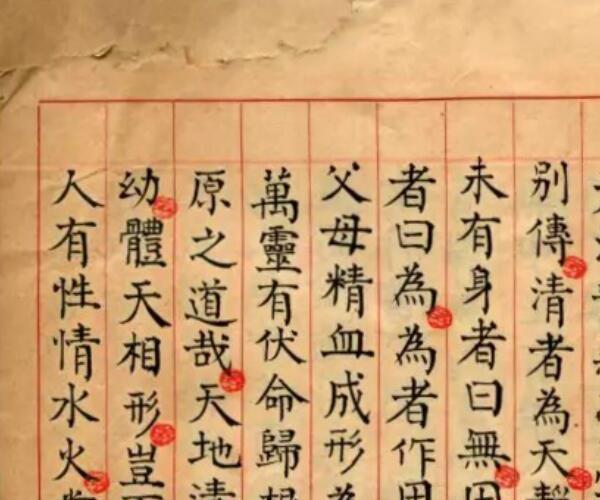 别傳清者為天
未有身者曰無
者曰為為者作用
父母精血成形為
萬靈有伏命歸根
原之道哉天地清
幼體天相形豈
人有性情水火